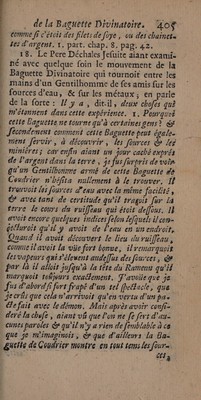 de la Baguette Divinatoire. 405
comme si c'étoit des filets de soye, ou des chainet-
tes d'argent. 1. part. chap. 8. pag. 42.
18. Le Pere Déchales Jesuite aiant exami-
né avec quelque soin le mouvement de la
Baguette Divinatoire qui tournoit entre les
mains d'un Gentilhomme de ses amis sur les
sources d'eau, & sur les métaux, en parle
de la sorte : Il y a, dit-il, deux choses qui
m'étonnent dans cette expérience. 1. Pourquoi
cette Baguette ne tourne qu'à certaines gens ? &
secondement comment cette Baguette peut égale-
ment servir, à découvrir, les sources & les
miniéres ; car enfin aiant un jour caché exprés
de l'argent dans la terre, je fus surpris de voir
qu'un Gentilhomme armé de cette Baguette de
Coudrier n'hésita nullement à le trouver. Il
trouvoit les sources d'eau avec la même facilité,
& avec tant de certitude qu'il traçoit sur la
terre le cours du ruisseau qui étoit dessous. Il
avoit encore quelques indices selon lesquels il con-
jecturoit qu'il y avoit de l'eau en un endroit.
Quand il avoit découvert le lieu du ruisseau,
comme il avoit la vûë fort bonne, il remarquoit
les vapeurs qui s'élevent audessus des sources, &
par là il alloit jusqu'à la tête du Rameau qu'il
marquoit toûjours exactement. J'avoüe que je
fus d'abord si fort frapé d'un tel spectacle, que
je crûs que cela n'arrivoit qu'en vertu d'un pa-
cte fait avec le démon. Mais aprés avoir consi-
deré la chose, aiant vû que l'on ne se sert d'au-
cunes paroles & qu'il n'y a rien de semblable à ce
que je m'imaginois, & que d'ailleurs la Ba-
guette de Coudrier montre en tout tems les sour-
ces,